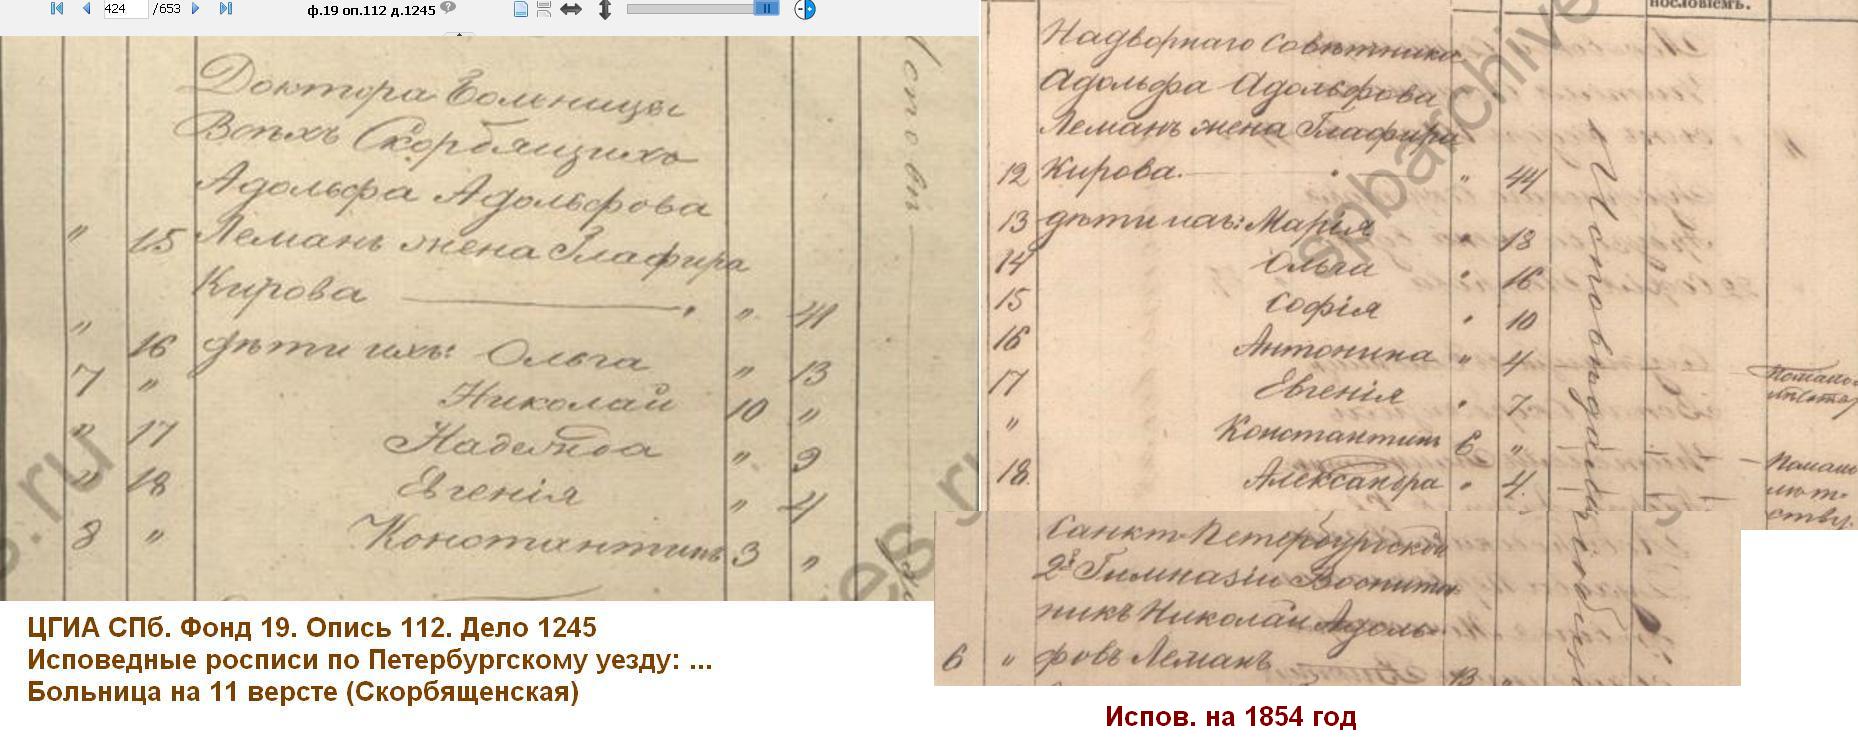 424 /653 ф.19 оп.112 д.1245
Доктора Больницы
Всѣхъ Скорбящихъ
Адольфа Адольфова
" 15 Леманъ жена Глафира
Кирова " 41
" 16 дѣти ихъ: Ольга " 13
7 " Николай 10 "
" 17 Надежда " 9
" 18 Евгенія " 4
8 " Константинъ 3 "
ЦГИА СПб. Фонд 19. Опись 112. Дело 1245
Исповедные росписи по Петербургскому уезду: ...
Больница на 11 версте (Скорбященская)
пословіемъ.
Надворнаго Совѣтника
Адольфа Адольфова
Леманъ жена Глафира
12 Кирова. " 44
13 дѣти ихъ: Марія " 18
14 Ольга " 16
15 Софія " 10
16 Антонина " 4
17 Евгенія " 7
" Константинъ 6 "
18. Александра " 4.
Санкт-Петербургской
2й Гимназіи Воспитан
никъ Николай Адоль-
6 " фовъ Леманъ 13
spbarchive
es.ru
Испов. на 1854 год